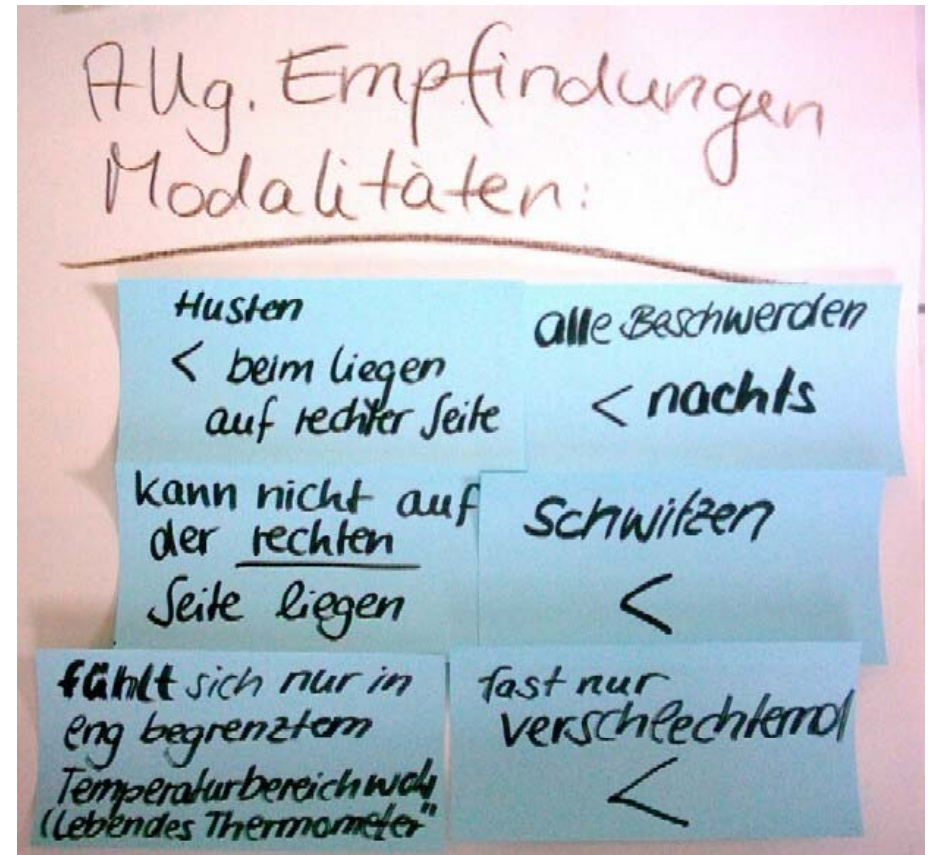 Allg. Empfindungen
Modalitäten:
Husten
< beim liegen
auf rechter Seite
alle Beschwerden
< nachts
kann nicht auf
der rechten
Seite liegen
Schwitzen
<
fühlt sich nur in
eng begrenztem
Temperaturbereich wohl
(Lebendes Thermometer"
fast nur
verschlechternd
<